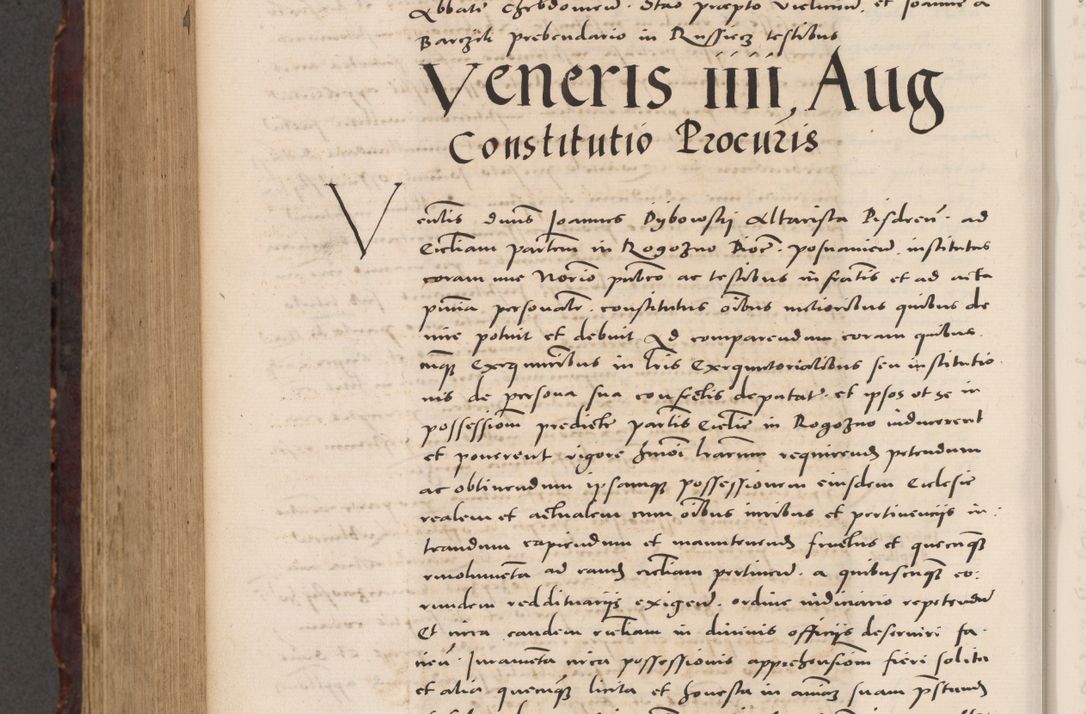 Abbate Chebdoviens. Stao prepto Vielicien, et Joanne a
Barczik prebendario in Russiecz testibus
Veneris iiii, Aug
Constitutio Procuris
Ventlis dnus Joannes Dybowskj Altarista Pisdren. ad
Eccliam partem in Rogozno Dioc. posnanien. institutus
coram me Nōrio pubco ac testibus infratis et ad acta
pnnia personatr. constitutus oībus melioribus quibus de
iure potuit et debuit Ad comparendum coram quibus
cunq Exequutoribus in lris Exequutorialibus seu institutio
nis de persona sua confectis deputat. et ipsos ut se in
possessiom predicte partis Ecclie in Rogozno inducerent
et ponerent vigore hmoi lrarum requirend petendum
ac obtinendum ipsamq possessionem eiusdem Ecclesie
realem et actualem cum oībus iuribus et pertinencijs in
trandum capiendum et manutenend fructus et quecunq
emolumenta ad eand eccliam pertinen. a quibuscunq eo:
rundem reddituarijs exigen. ordine iudiciario repetendu
Et circa eandem eccliam in divinis officijs deserviri fa
cien. Juramenta circa possessionis apprehensiom fieri solita
et alia quecunq licita et honesta in animā suam prestand